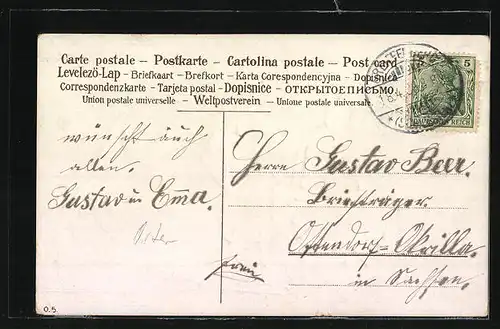 Carte postale – Postkarte – Cartolina postale – Post card
Levelező-Lap – Briefkaart – Brefkort – Karta Corespondencyjna – Dopisnice
Correspondenzkarte – Tarjeta postal – Dopisnice – ОТКРЫТОЕ ПИСЬМО
Union postale universelle – Weltpostverein – Unione postale universale.
5
DEUTSCHES REICH
wünscht auch
allen.
Gustav u Emma.
Herrn Gustav Beer.
Briefträger
Ottendorf-Okrilla.
in Sachsen.
0.5.